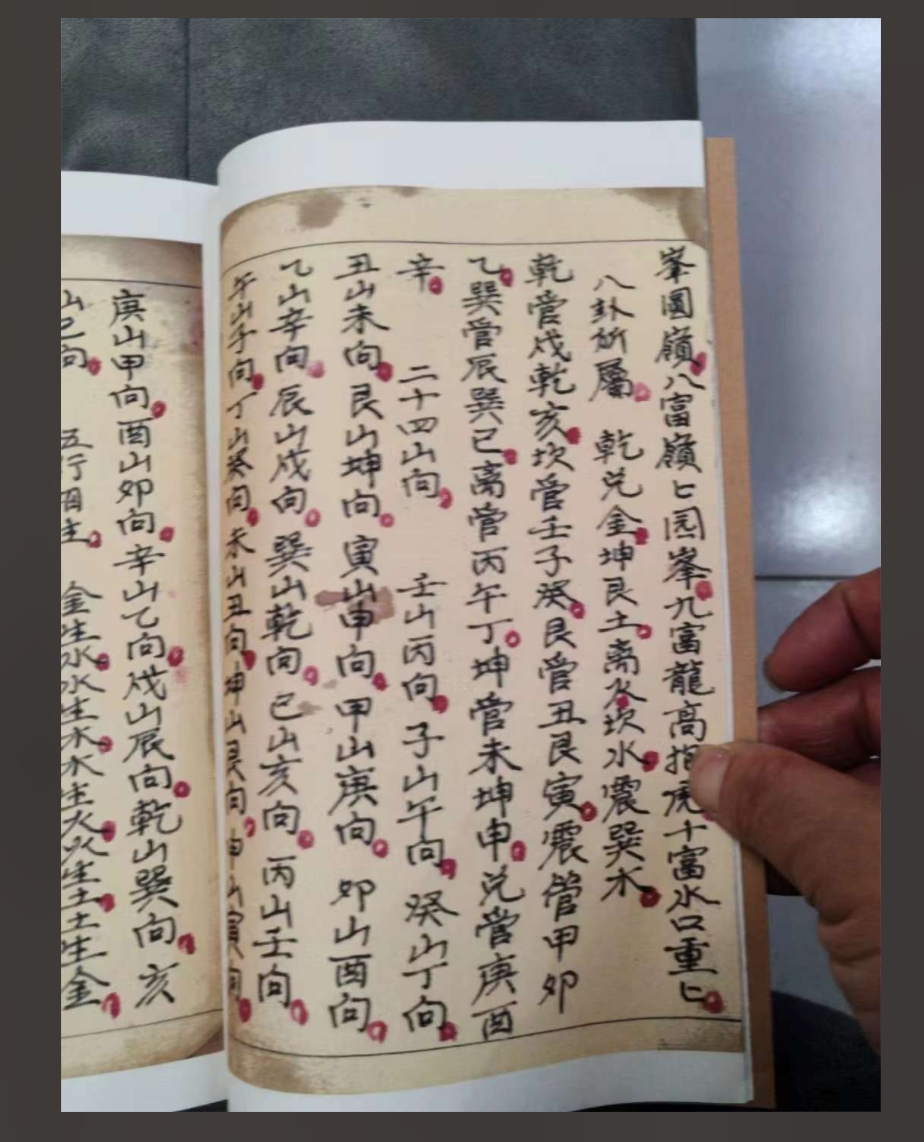 峯圓嶺八富嶺匕园峯九富龍高抱虎十富水口重匕
八卦所屬 乾兑金坤艮土离火坎水震巽木
乾管戍乾亥坎管壬子癸艮管丑艮寅震管甲卯
乙巽管辰巽巳离管丙午丁坤管未坤申兑管庚酉
辛 二十四山向 壬山丙向子山午向癸山丁向
丑山未向艮山坤向寅山申向甲山庚向卯山酉向
乙山辛向辰山戍向巽山乾向巳山亥向丙山壬向
午山子向丁山癸向未山丑向坤山艮向申山寅向
庚山甲向酉山卯向辛山乙向戍山辰向乾山巽向亥
山巳向 五行相生 金生水水生木木生火火生土土生金